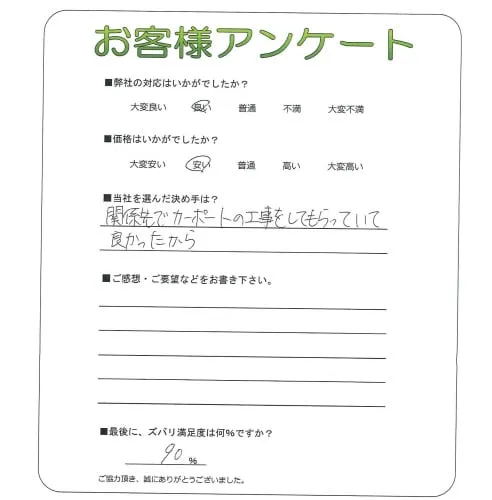 お客様アンケート
■弊社の対応はいかがでしたか？
大変良い 良い 普通 不満 大変不満
■価格はいかがでしたか？
大変安い 安い 普通 高い 大変高い
■当社を選んだ決め手は？
関係先でカーポートの工事をしてもらっていて
良かったから
■ご感想・ご要望などをお書き下さい。
■最後に、ズバリ満足度は何%ですか？
90 %
ご協力頂き、誠にありがとうございました。